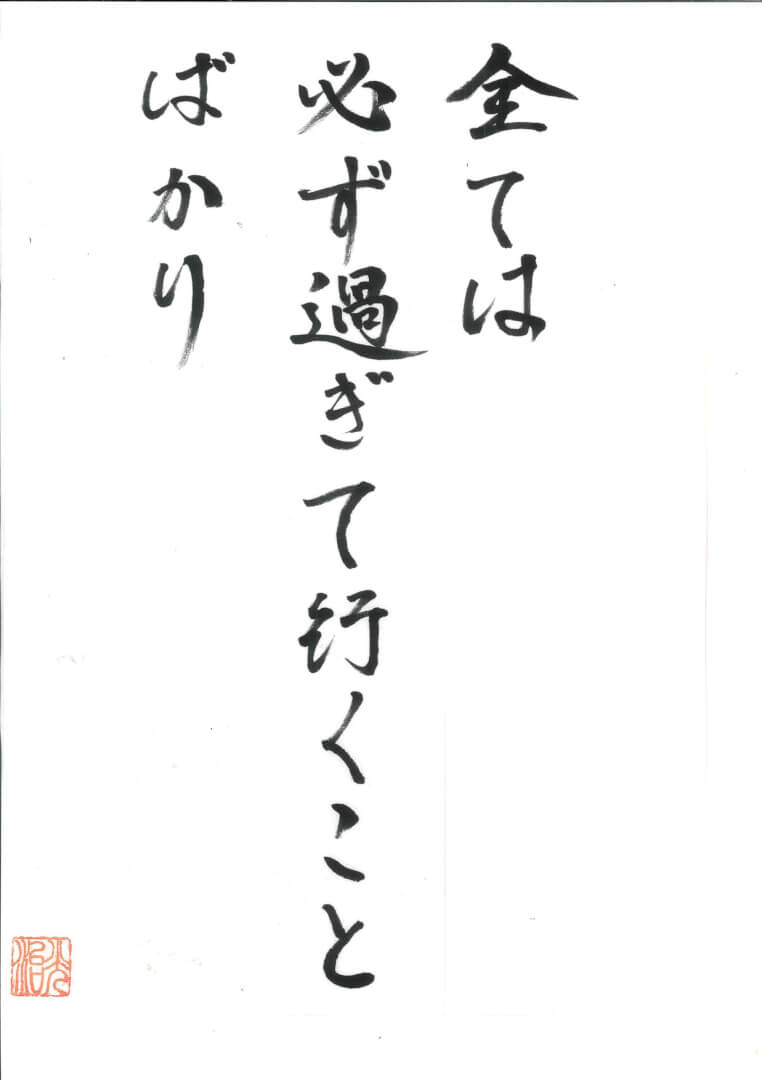 全ては
必ず過ぎて行くこと
ばかり